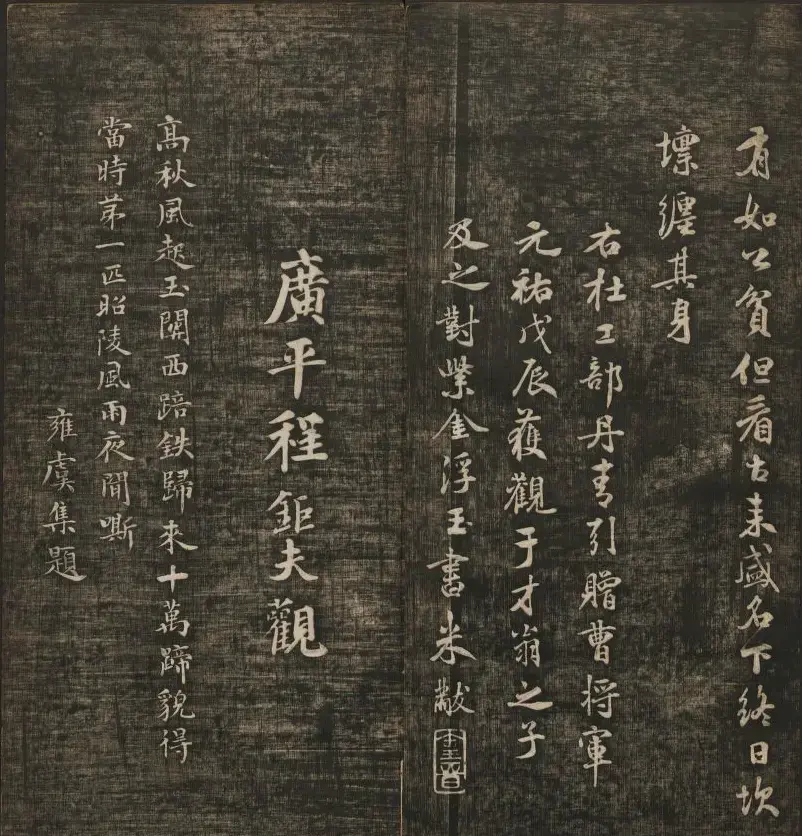 有如公貧但看古來盛名下終日坎
壈纏其身
右杜工部丹青引贈曹將軍
元祐戊辰獲觀于才翁之子
及之對紫金浮玉書米黻
廣平程鉅夫觀
高秋風起玉關西踣鉄歸來十萬蹄貌得
當時苐一匹昭陵風雨夜聞嘶
雍虞集題